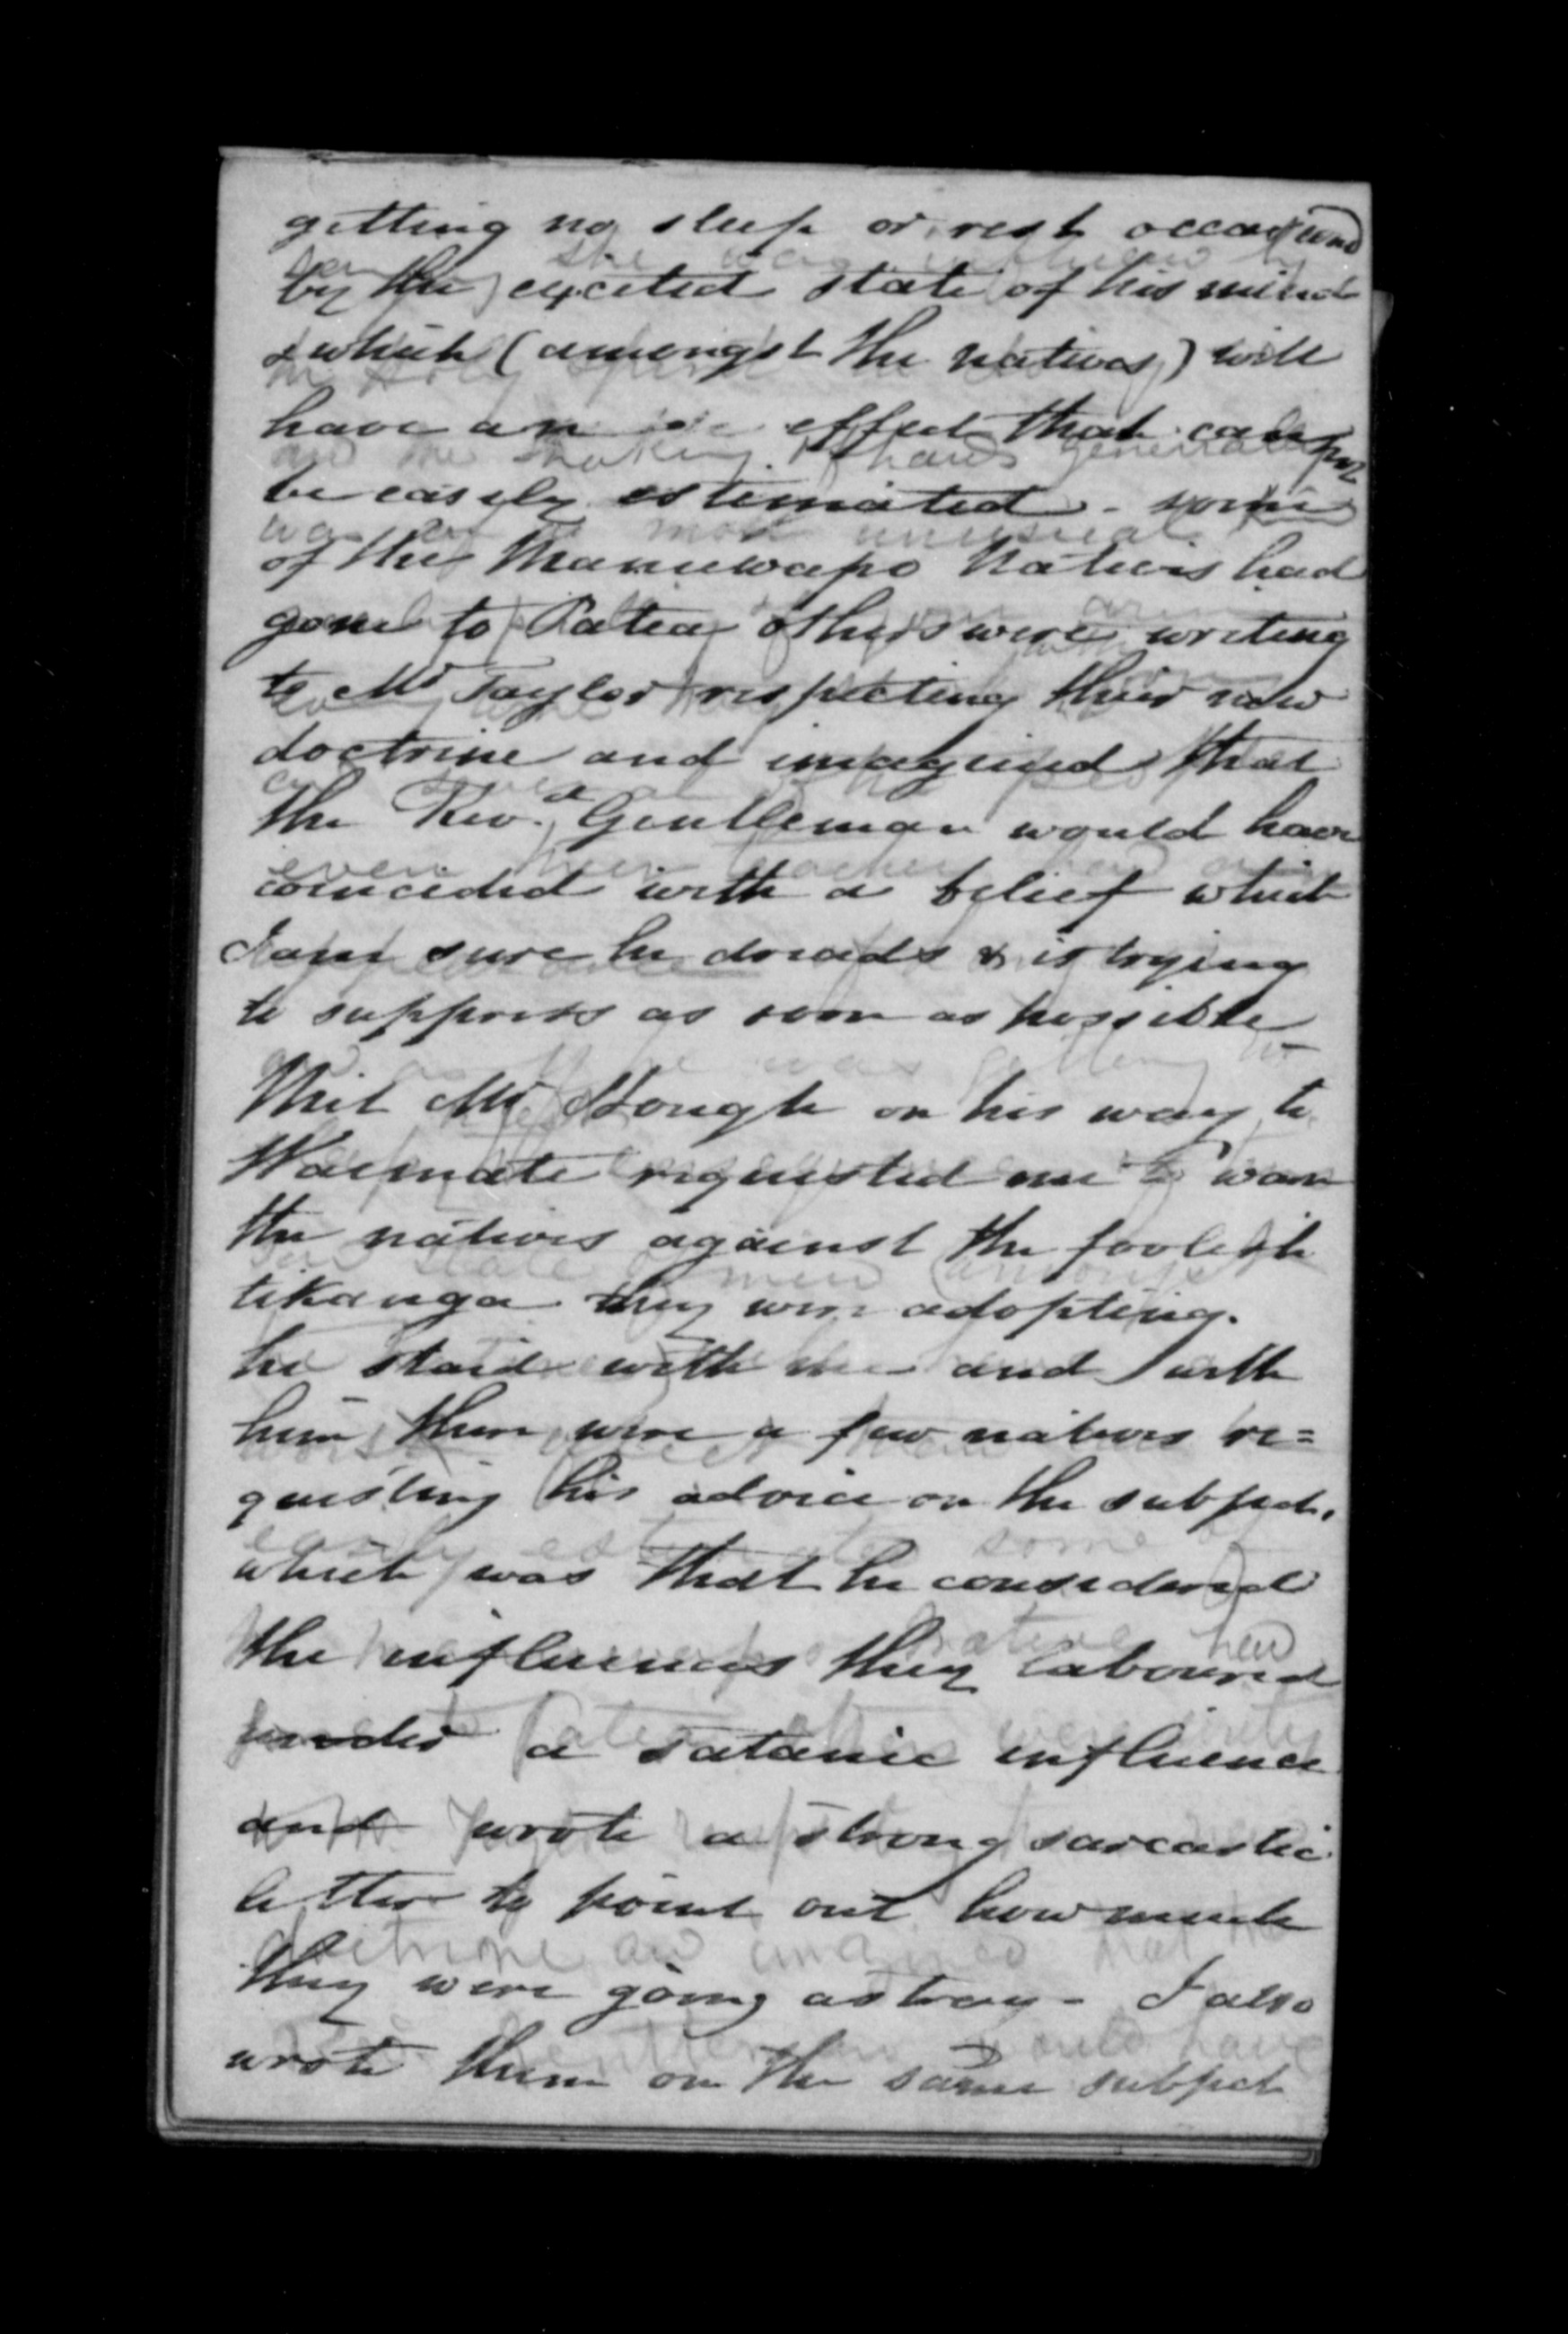 getting no sleep or rest occasiond
by the excited state of his mind
& which (amongst the natives) will
have an effect that cannot
be easily estimated - some
of the Manuwapo Natives had
gone to Patea others were writing
to Mr Taylor respecting their new
doctrine and imagined that
the Revd. Gentleman would have
coincided with a belief which
I am sure he dreads & is trying
to suppress as soon as possible -
Met Mr Hough on his way to
Waimate requested me to warn
the natives against the foolish
tikanga they were adopting.
he staid with me and with
him there were a few natives re=
questing his advice on the subject,
which was that he considered
the influences they laboured
under a satanic influence
and wrote a strong sarcastic
letter to point out how much
they were going astray - I also
wrote them on the same subject